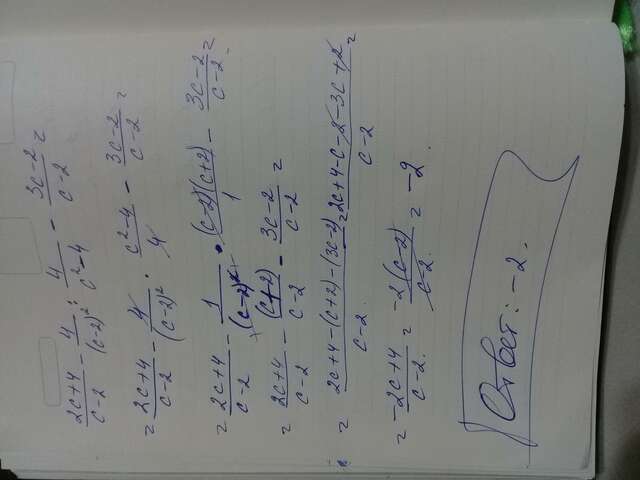 (2c+4)/(c-2) - 4/(c-2)² : 4/(c²-4) - (3c-2)/(c-2) =
= (2c+4)/(c-2) - 4/(c-2)² · (c²-4)/4 - (3c-2)/(c-2) =
= (2c+4)/(c-2) - 1/(c-2)² · (c-2)(c+2)/1 - (3c-2)/(c-2) =
= (2c+4)/(c-2) - (c+2)/(c-2) - (3c-2)/(c-2) =
= (2c+4-(c+2)-(3c-2))/(c-2) = (2c+4-c-2-3c+2)/(c-2) =
= (-2c+4)/(c-2) = -2(c-2)/(c-2) = -2.
Ответ: -2.